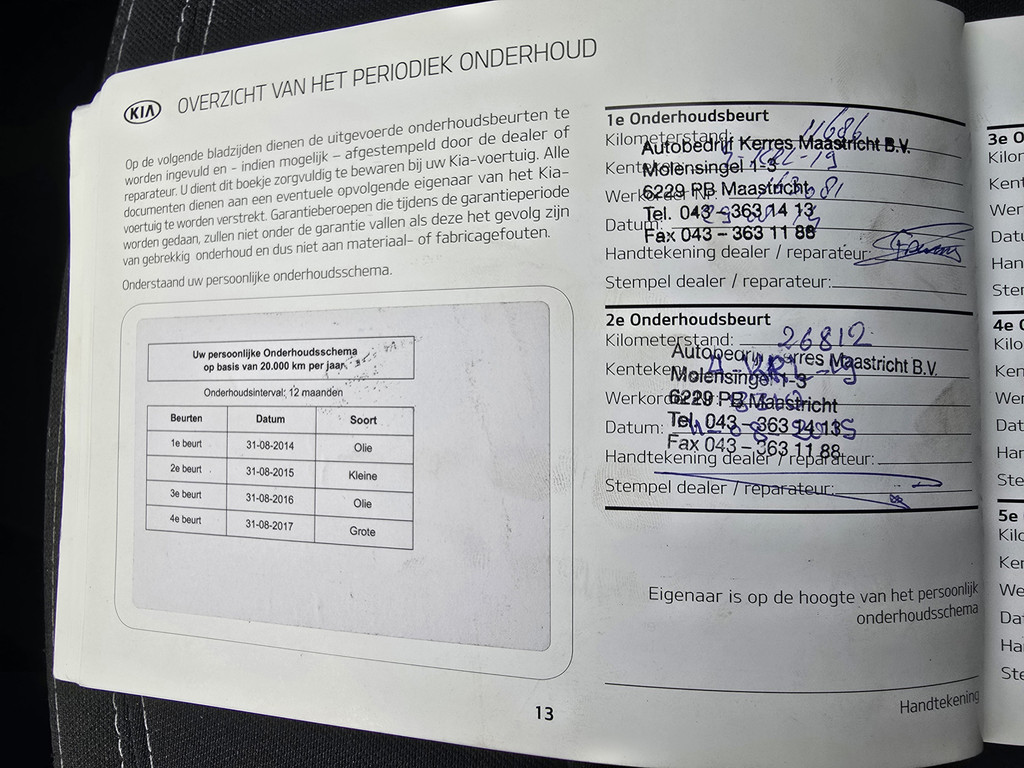 KIA OVERZICHT VAN HET PERIODIEK ONDERHOUD
Op de volgende bladzijden dienen de uitgevoerde onderhoudsbeurten te
worden ingevuld en - indien mogelijk – afgestempeld door de dealer of
reparateur. U dient dit boekje zorgvuldig te bewaren bij uw Kia-voertuig. Alle
documenten dienen aan een eventuele opvolgende eigenaar van het Kia-
voertuig te worden verstrekt. Garantieberoepen die tijdens de garantieperiode
worden gedaan, zullen niet onder de garantie vallen als deze het gevolg zijn
van gebrekkig onderhoud en dus niet aan materiaal- of fabricagefouten.
Onderstaand uw persoonlijke onderhoudsschema.
Uw persoonlijke Onderhoudsschema
op basis van 20.000 km per jaar
Onderhoudsinterval; 12 maanden
Beurten Datum Soort
1e beurt 31-08-2014 Olie
2e beurt 31-08-2015 Kleine
3e beurt 31-08-2016 Olie
4e beurt 31-08-2017 Grote
13
1e Onderhoudsbeurt
Kilometerstand: 11686
Autobedrijf Kerres Maastricht B.V.
Molensingel 1-3
6229 PB Maastricht
Tel. 043 – 363 14 13
Datum:
Fax 043 – 363 11 88
Handtekening dealer / reparateur:
Stempel dealer / reparateur:
2e Onderhoudsbeurt
Kilometerstand: 26812
Autobedrijf Kerres Maastricht B.V.
Molensingel 1-3
6229 PB Maastricht
Datum:
Tel. 043 – 363 14 13
Fax 043 – 363 11 88
Handtekening dealer / reparateur:
Stempel dealer / reparateur:
Eigenaar is op de hoogte van het persoonlijk
onderhoudsschema
Handtekening
3e O
4e O
5e